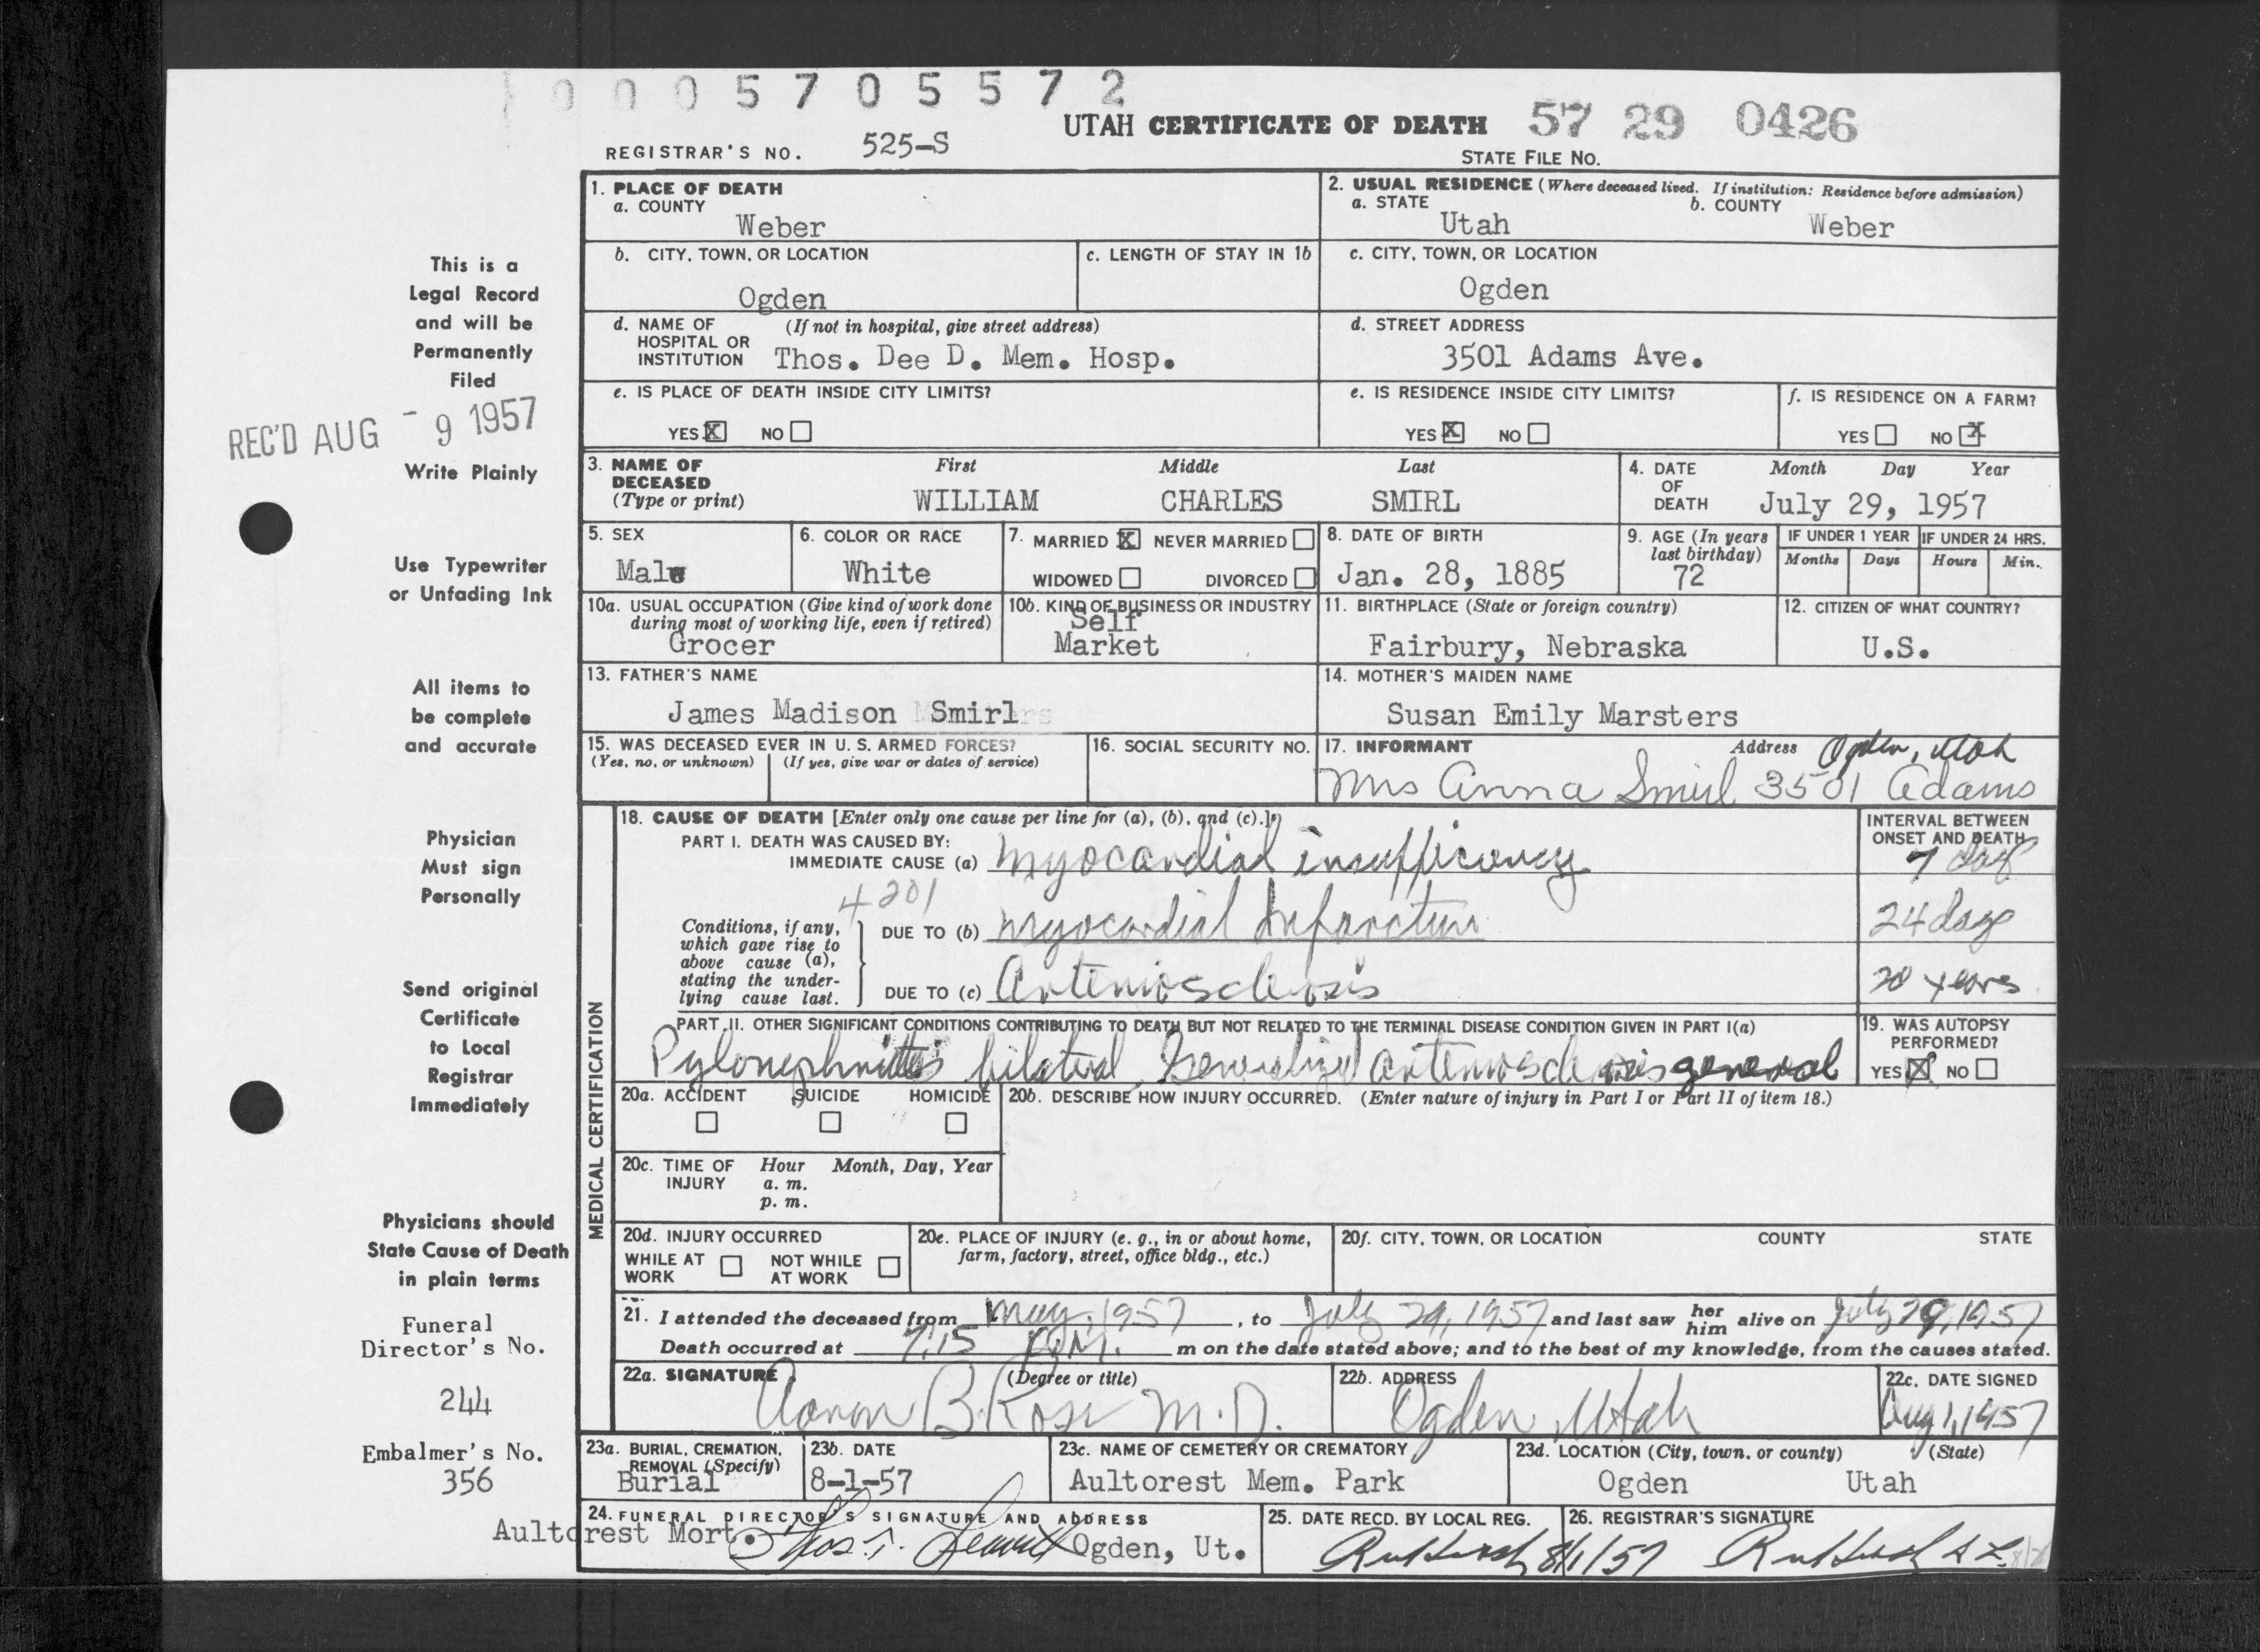 0005705572
UTAH CERTIFICATE OF DEATH 57 29 0426
REGISTRAR'S NO. 525-S
STATE FILE NO.
1. PLACE OF DEATH
a. COUNTY
Weber
2. USUAL RESIDENCE (Where deceased lived. If institution: Residence before admission)
a. STATE b. COUNTY
Utah Weber
b. CITY, TOWN, OR LOCATION
Ogden
c. LENGTH OF STAY IN 1b
c. CITY, TOWN, OR LOCATION
Ogden
d. NAME OF HOSPITAL OR INSTITUTION (If not in hospital, give street address)
Thos. Dee D. Mem. Hosp.
d. STREET ADDRESS
3501 Adams Ave.
e. IS PLACE OF DEATH INSIDE CITY LIMITS?
YES X NO
e. IS RESIDENCE INSIDE CITY LIMITS?
YES X NO
f. IS RESIDENCE ON A FARM?
YES NO X
3. NAME OF DECEASED (Type or print)
First Middle Last
WILLIAM CHARLES SMIRL
4. DATE OF DEATH Month Day Year
July 29, 1957
5. SEX
Male
6. COLOR OR RACE
White
7. MARRIED X NEVER MARRIED
WIDOWED DIVORCED
8. DATE OF BIRTH
Jan. 28, 1885
9. AGE (In years last birthday)
72
IF UNDER 1 YEAR
Months Days
IF UNDER 24 HRS.
Hours Min.
10a. USUAL OCCUPATION (Give kind of work done during most of working life, even if retired)
Grocer
10b. KIND OF BUSINESS OR INDUSTRY
Self
Market
11. BIRTHPLACE (State or foreign country)
Fairbury, Nebraska
12. CITIZEN OF WHAT COUNTRY?
U.S.
13. FATHER'S NAME
James Madison Smirl
14. MOTHER'S MAIDEN NAME
Susan Emily Marsters
15. WAS DECEASED EVER IN U. S. ARMED FORCES?
(Yes, no, or unknown) (If yes, give war or dates of service)
16. SOCIAL SECURITY NO.
17. INFORMANT Address Ogden, Utah
Mrs Anna Smirl 3501 Adams
MEDICAL CERTIFICATION
18. CAUSE OF DEATH [Enter only one cause per line for (a), (b), and (c).]
PART I. DEATH WAS CAUSED BY:
IMMEDIATE CAUSE (a) Myocardial insufficiency
INTERVAL BETWEEN ONSET AND DEATH
7 days
4201
Conditions, if any, which gave rise to above cause (a), stating the underlying cause last.
DUE TO (b) Myocardial Infarction
24 days
DUE TO (c) Arteriosclerosis
20 years
PART II. OTHER SIGNIFICANT CONDITIONS CONTRIBUTING TO DEATH BUT NOT RELATED TO THE TERMINAL DISEASE CONDITION GIVEN IN PART I(a)
Pylonephritis bilateral, Generalized arteriosclerosis general
19. WAS AUTOPSY PERFORMED?
YES X NO
20a. ACCIDENT SUICIDE HOMICIDE
20b. DESCRIBE HOW INJURY OCCURRED. (Enter nature of injury in Part I or Part II of item 18.)
20c. TIME OF INJURY Hour Month, Day, Year
a. m.
p. m.
20d. INJURY OCCURRED
WHILE AT WORK NOT WHILE AT WORK
20e. PLACE OF INJURY (e. g., in or about home, farm, factory, street, office bldg., etc.)
20f. CITY, TOWN, OR LOCATION COUNTY STATE
21. I attended the deceased from May, 1957, to July 29, 1957 and last saw her him alive on July 29, 1957
Death occurred at 7:15 P.M. m on the date stated above; and to the best of my knowledge, from the causes stated.
22a. SIGNATURE (Degree or title)
Aaron B. Ross M.D.
22b. ADDRESS
Ogden, Utah
22c. DATE SIGNED
Aug 1, 1957
23a. BURIAL, CREMATION, REMOVAL (Specify)
Burial
23b. DATE
8-1-57
23c. NAME OF CEMETERY OR CREMATORY
Aultorest Mem. Park
23d. LOCATION (City, town, or county) (State)
Ogden Utah
24. FUNERAL DIRECTOR'S SIGNATURE AND ADDRESS
Aultorest Mort. Thos. T. Leavitt Ogden, Ut.
25. DATE RECD. BY LOCAL REG.
8/1/57
26. REGISTRAR'S SIGNATURE
This is a
Legal Record
and will be
Permanently
Filed
REC'D AUG - 9 1957
Write Plainly
Use Typewriter
or Unfading Ink
All items to
be complete
and accurate
Physician
Must sign
Personally
Send original
Certificate
to Local
Registrar
Immediately
Physicians should
State Cause of Death
in plain terms
Funeral
Director's No.
244
Embalmer's No.
356